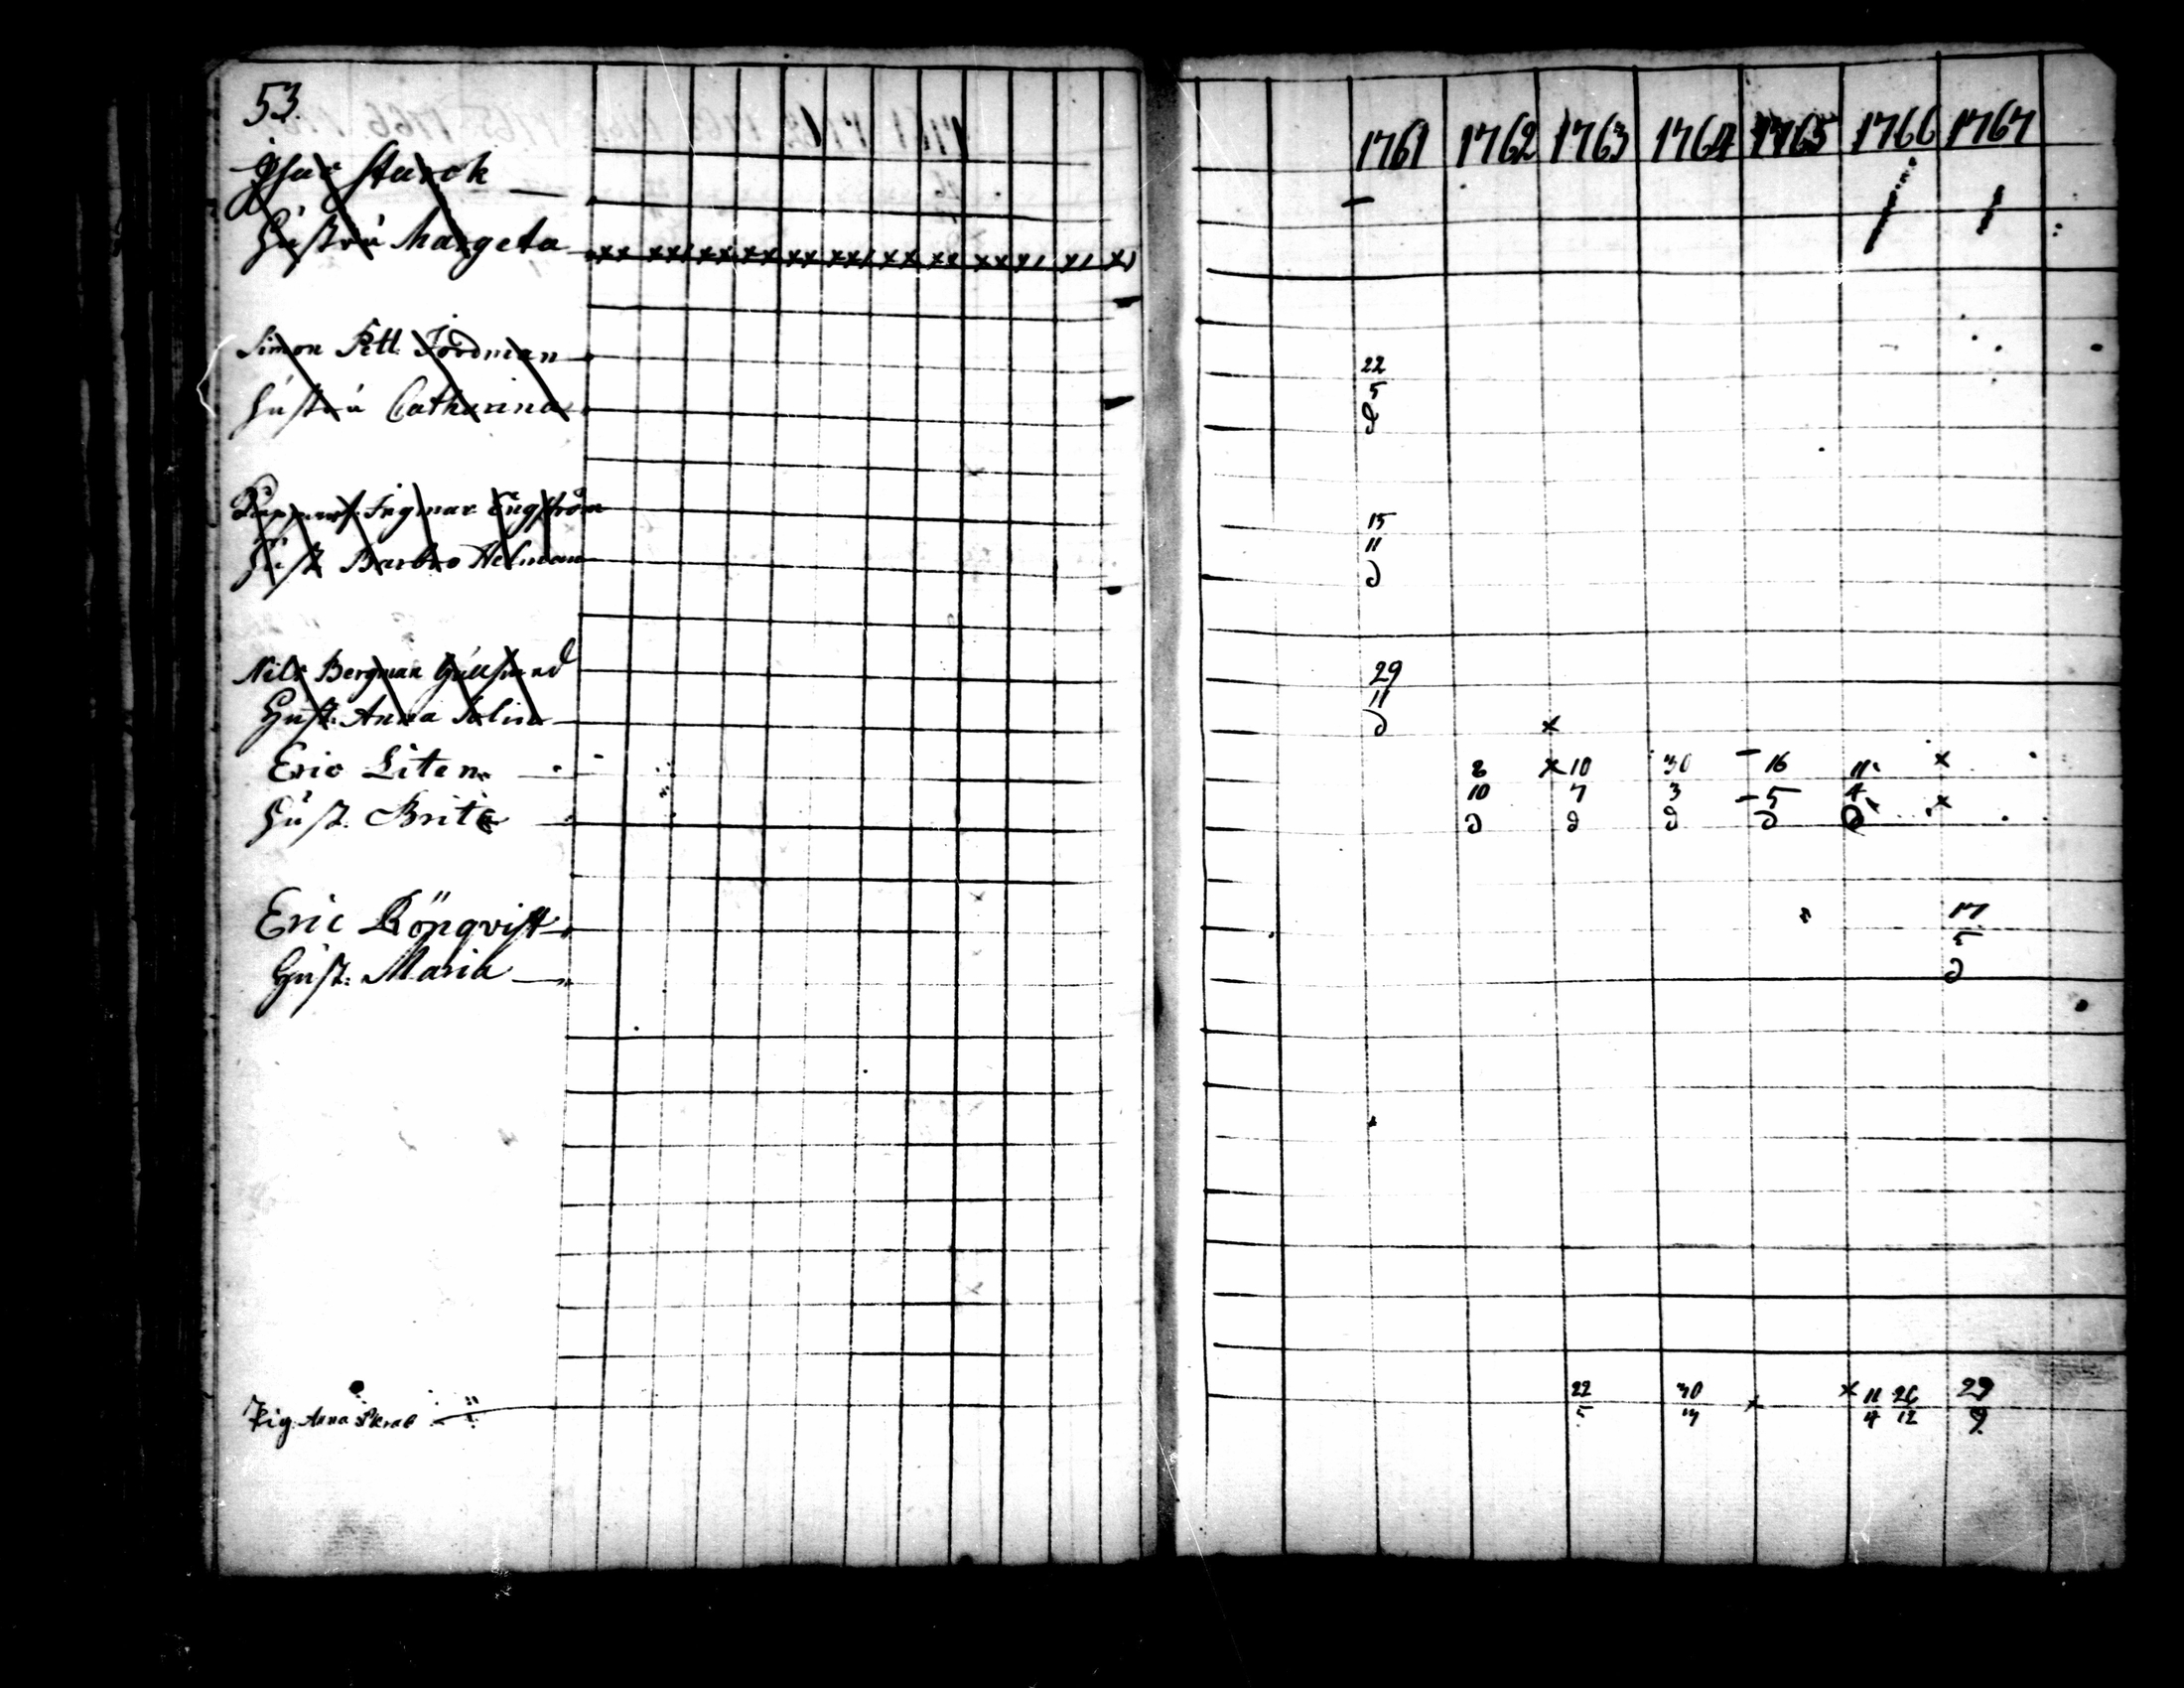 53.
Isac Starck
Hustru Margeta xx xx/ xx xx xx xx/ xx xx xx x/ x/ x)
Simon Pett. Jordman
Hustru Catharina
Ingmar Engström
Hust. Barbro Helman
Nils Bergman
Hust. Anna
Eric Liten
Hust. Brita
Eric Rönqvist
Hust: Maria
Pig. Anna
1761 1762 1763 1764 1765 1766 1767
22
5
15
11
29
11
x
8 x 10 30 16 11 x
10 7 3 5 4 x
17
5
22 30 x x 11 26 29
5 4 12 9